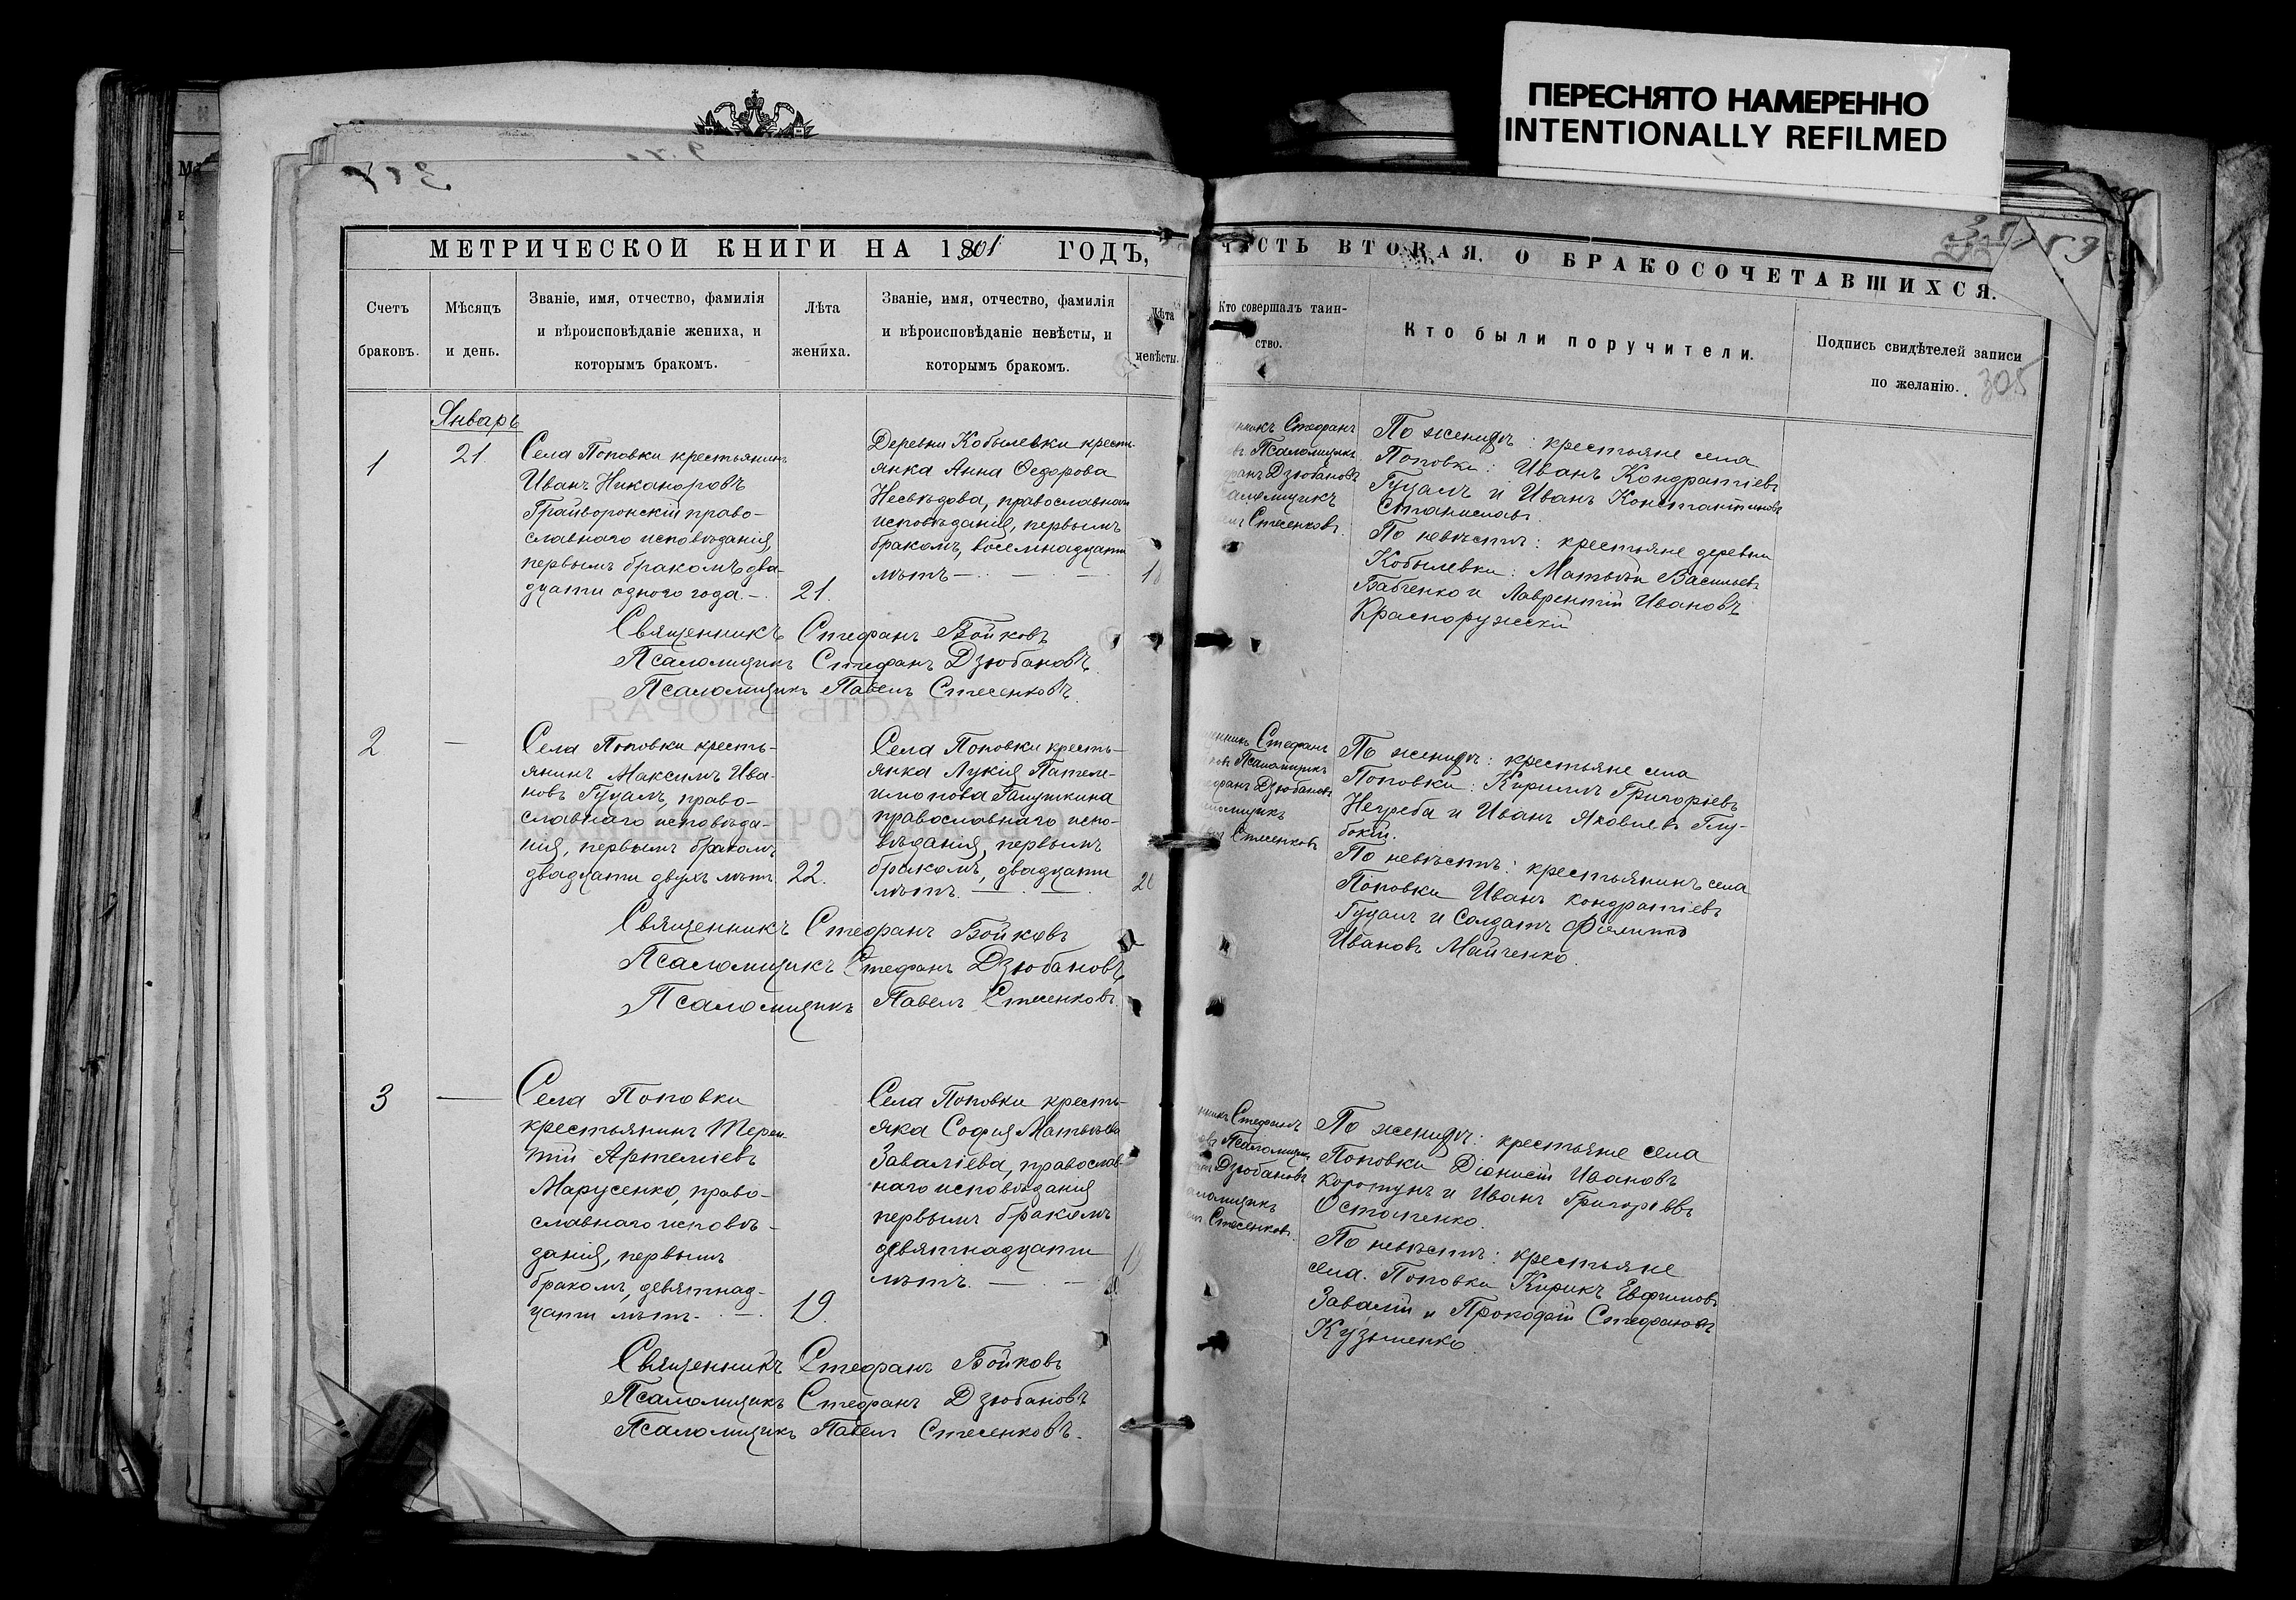 ПЕРЕСНЯТО НАМЕРЕННО
INTENTIONALLY REFILMED
МЕТРИЧЕСКОЙ КНИГИ НА 1901 ГОДЪ,
ЧАСТЬ ВТОРАЯ. О БРАКОСОЧЕТАВШИХСЯ.
Счетъ
браковъ.
Мѣсяцъ
и день.
Званіе, имя, отчество, фамилія
и вѣроисповѣданіе жениха, и
которымъ бракомъ.
Лѣта
жениха.
Званіе, имя, отчество, фамилія
и вѣроисповѣданіе невѣсты, и
которымъ бракомъ.
Лѣта
невѣсты.
Кто совершалъ таин-
ство.
Кто были поручители.
Подпись свидѣтелей записи
по желанію.
305
Январь
1
21
Села Поповки крестьянинъ
Иванъ Никаноровъ
Грайворонскій право-
славнаго исповѣданія,
первымъ бракомъ два-
дцати одного года. –
21.
Деревни Кобылевки кресть-
янка Анна Ѳедорова
Несвѣдова, православнаго
исповѣданія, первымъ
бракомъ, восемнадцати
лѣтъ –
Стефанъ
Псаломщикъ
Дзюбановъ
Стесенковъ.
По женихѣ: крестьяне села
Поповки: Иванъ Кондратіевъ
Гуцалъ и Иванъ Константиновъ
Станиславъ.
По невѣстѣ: крестьяне деревни
Кобылевки: Матвѣй Васильевъ
Бабченко и Лаврентій Ивановъ
Краснорузскій
Священникъ Стефанъ Бойковъ
Псаломщикъ Стефанъ Дзюбановъ.
Псаломщикъ Павелъ Стесенковъ.
2
–
Села Поповки кресть-
янинъ Максимъ Ива-
новъ Гуцалъ, право-
славнаго исповѣда-
нія, первымъ бракомъ
двадцати двухъ лѣтъ
22.
Села Поповки кресть-
янка Лукія Пантеле-
имонова Галушкина
православнаго испо-
вѣданія, первымъ
бракомъ, двадцати
лѣтъ. –
Стефанъ
Псаломщикъ
Дзюбановъ
Стесенковъ
По женихѣ: крестьяне села
Поповки: Кириллъ Григоріевъ
Негреба и Иванъ Яковлевъ Глу-
бокій.
По невѣстѣ: крестьянинъ села
Поповки Иванъ Кондратіевъ
Гуцалъ и Солдатъ Филиппъ
Ивановъ Майченко.
Священникъ Стефанъ Бойковъ
Псаломщикъ Стефанъ Дзюбановъ
Псаломщикъ Павелъ Стесенковъ.
3
–
Села Поповки
крестьянинъ Терен-
тій Артеміевъ
Марусенко, право-
славнаго исповѣ-
данія, первымъ
бракомъ, девятнад-
цати лѣтъ. –
19.
Села Поповки кресть-
янка Софія Матвѣева
Заваліева, православ-
наго исповѣданія
первымъ бракомъ
девятнадцати
лѣтъ. –
Стефанъ
Псаломщикъ
Дзюбановъ
Стесенковъ.
По женихѣ: крестьяне села
Поповки Діонисій Ивановъ
Коротунъ и Иванъ Григорьевъ
Остапенко.
По невѣстѣ: крестьяне
села. Поповки Кирикъ Евфимовъ
Завалій и Прокофій Стефановъ
Кузьменко.
Священникъ Стефанъ Бойковъ
Псаломщикъ Стефанъ Дзюбановъ
Псаломщикъ Павелъ Стесенковъ.